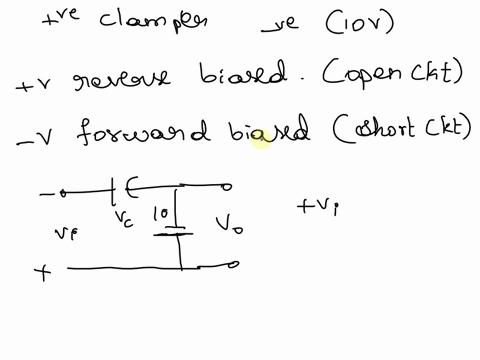 +ve clamper -ve (10v)
+v reverse biased. (open ckt)
-v forward biased (short ckt)
-
Vc 10
Vi Vo +Vi
+